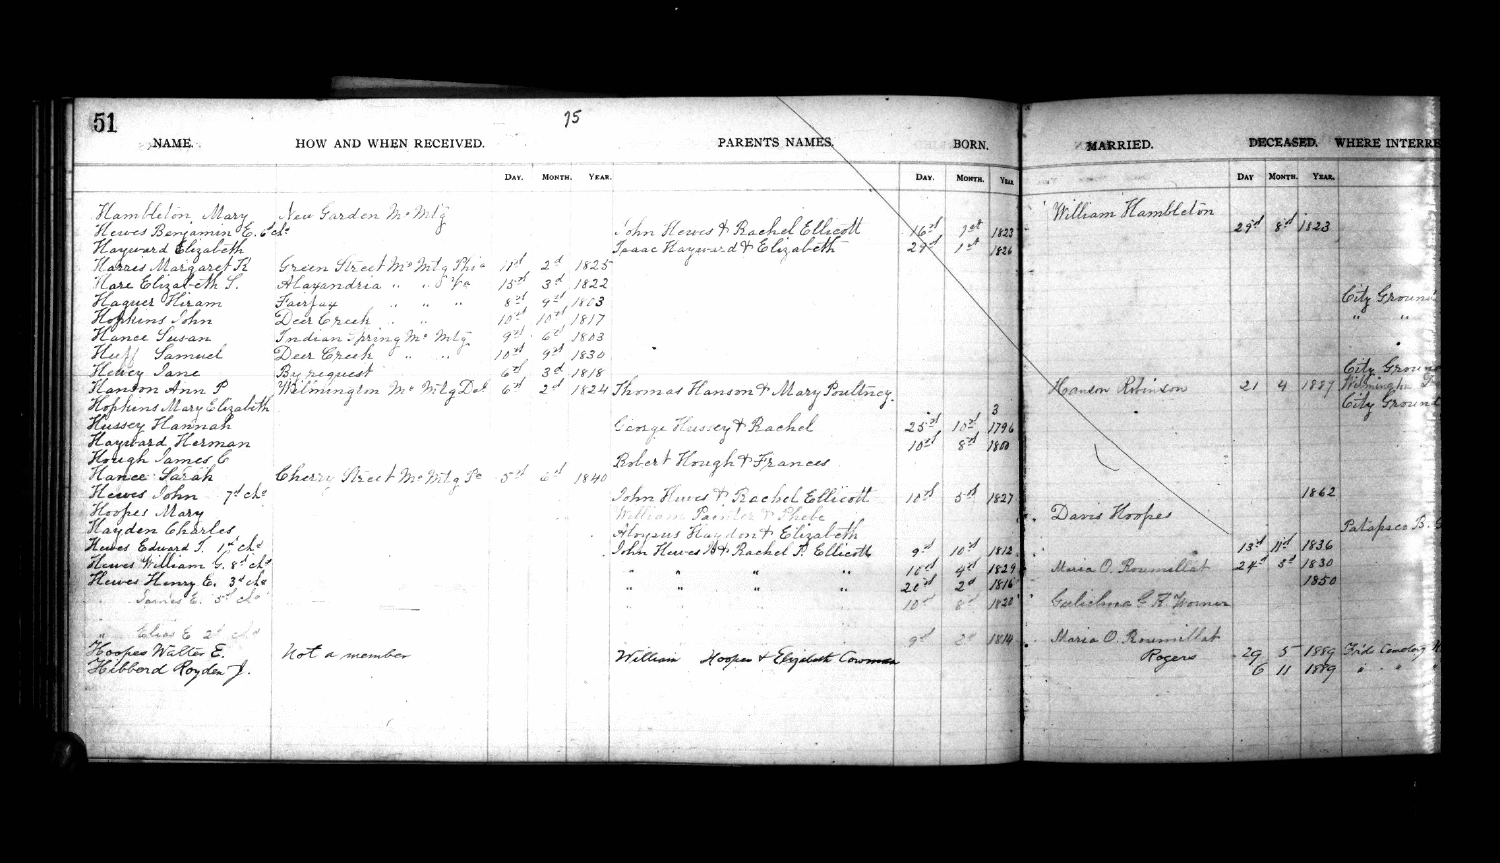 51
75
NAME. HOW AND WHEN RECEIVED. PARENTS NAMES. BORN. MARRIED. DECEASED. WHERE INTERRE
DAY. MONTH. YEAR. DAY. MONTH. YEAR DAY MONTH. YEAR.
Hambleton, Mary New Garden Mo Mtg William Hambleton
Hewes Benjamin E. 6 chd John Hewes & Rachel Ellicott 16th 7th 1823 29th 8th 1823
Hayward Elizabeth Isaac Hayward & Elizabeth 27th 1st 1826
Harris Margaret R Green Street Mo Mtg Phia 11th 2d 1825
Hare Elizabeth S. Alaxandria " " 15th 3d 1822
Haguer Hiram Fairfax " " " 8th 9th 1803 City Ground
Hopkins John Deer Creek " " 10th 10th 1817 " "
Hance Susan Indian Spring Mo Mtg 9th 6th 1803
Huff Samuel Deer Creek " " 10th 9th 1830
Hewey Jane By request 6th 3d 1818 City Groun
Hanson Ann P Wilmington Mo Mtg Del 6th 2d 1824 Thomas Hanson & Mary Poultney. Hanson Robinson 21 4 1887 Wilmingtn
Hopkins Mary Elizabeth 3 City Ground
Hussey Hannah George Hussey & Rachel 25th 10th 1796
Hayward Herman 10th 8th 1800
Hough James C Robert Hough & Frances
Hance Sarah Cherry Street Mo Mtg Pa 5th 6th 1840
Hewes John 7th chd John Hewes & Rachel Ellicott 10th 5th 1827 1862
Hoopes Mary William Painter & Phebe Davis Hoopes
Hayden Charles Aloysus Haydon & Elizabeth Patapsco B.
Hewes Edward T. 1st chd John Hewes & Rachel T. Ellicott 9th 10th 1812 13th 11th 1836
Hewes William G. 8th chd " " " " 16th 4th 1829 Maria O. Roumillat 24th 3d 1830
Hewes Henry E. 3d chd " " " " 20th 2d 1816 1850
James E. 5th chd 10th 8th 1820 Gulielma G. K. Worner
" Elias E 2d chd 9th 2d 1814 Maria O. Roumillat
Hoopes Walter E. Not a member William Hoopes & Elizabeth Cowman Rogers 29 5 1889 Frds Cemetery
Hibberd Royden J. 6 11 1889 " " "